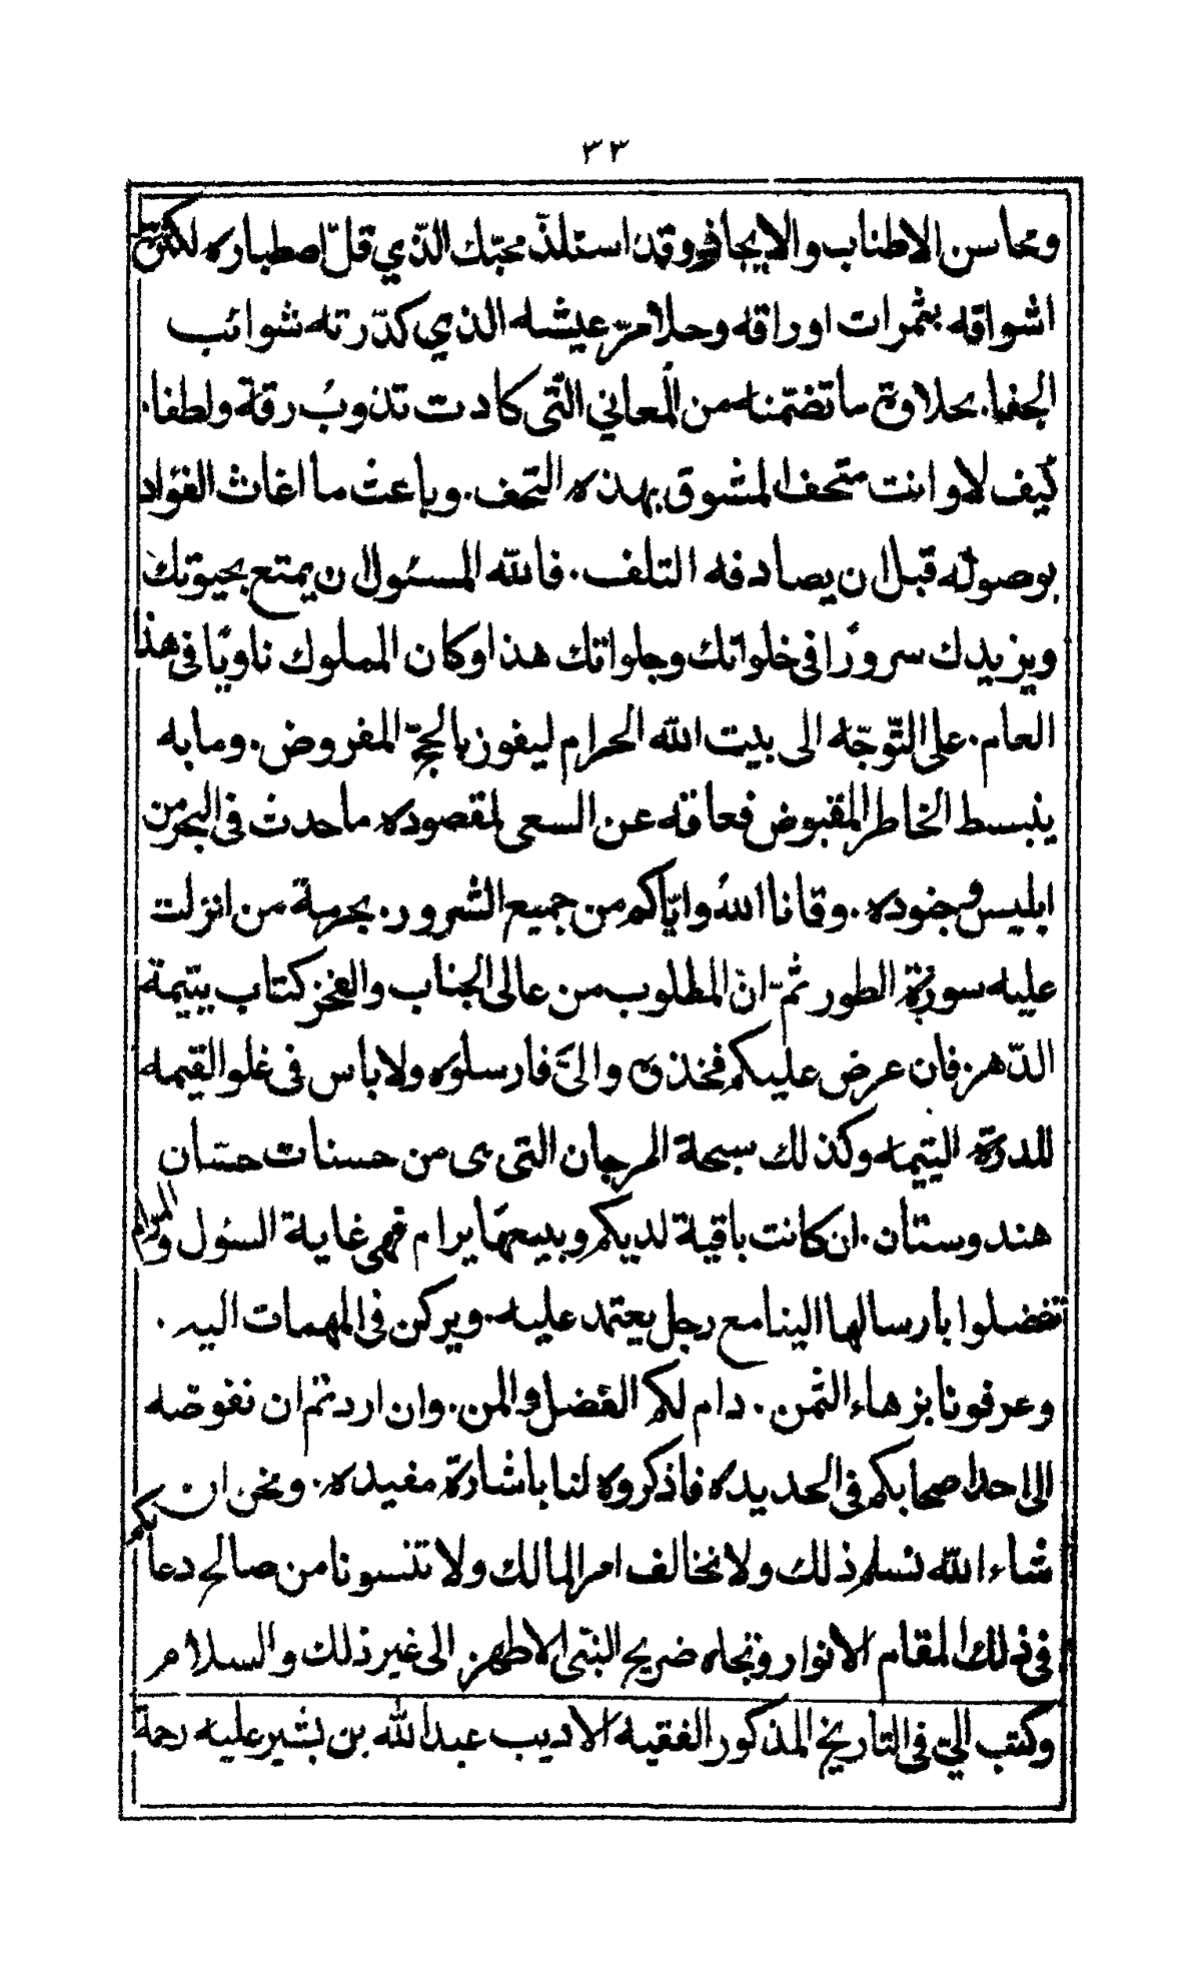 ٣٣
ومحاسن الاطناب والايجاز وقد استلذّ محبّك الذّي قلّ اصطباره لكثرة
اشواقه بثمرات اوراقه وحلا مرّ عيشه الذي كدّرته شوائب
الجفا. بحلاوة ما تضمّنته من المعاني التّي كادت تذوبُ رقة ولطفا.
كيف لا وانت متحف المشوق بهذه التحف. وباعث ما اغاث الفؤاد
بوصوله قبل ان يصادفه التلف. فالله المسئول ان يمتع بحيوتك
ويزيدك سرورًا في خلواتك وجلواتك هذا وكان المملوك ناويًا في هذا
العام. على التّوجّه الى بيت الله الحرام ليفوز بالحجّ المفروض. وما به
ينبسط الخاطر المقبوض فعاقه عن السعى لمقصوده ما حدث في البحر من
ابليس وجنوده. وقانا اللهُ وايّاكم من جميع الشرور. بحرمة من انزلت
عليه سورة الطور ثمّ انّ المطلوب من عالى الجناب والفخر كتاب يتيمة
الدّهر فان عرض عليكم فخذوه والىَّ فارسلوه ولا باس فى غلو القيمه
للدرّة اليتيمه وكذلك سبحة المرجان التى هى من حسنات حسّان
هندوستان. ان كانت باقية لديكم وبيعها يرام فهى غاية السئول والمرام
تفضلوا بارسالها الينا مع رجل يعتمد عليه. ويركن فى المهمات اليه.
وعرفونا بزهاء الثمن. دام لكم الفضل والمن. وان اردتم ان نفوضه
الى احد اصحابكم فى الحديده فاذكروه لنا باشارة مفيده. ونحن ان
شاء الله نسلم ذلك ولا نخالف امر المالك ولا تنسونا من صالح دعائكم
في ذلك المقام الانوار وتجاه ضريح النبّى الاطهر الى غير ذلك والسلام
وكتب اليّ فى التاريخ المذكور الفقيه الاديب عبد الله بن بشير عليه رحمة